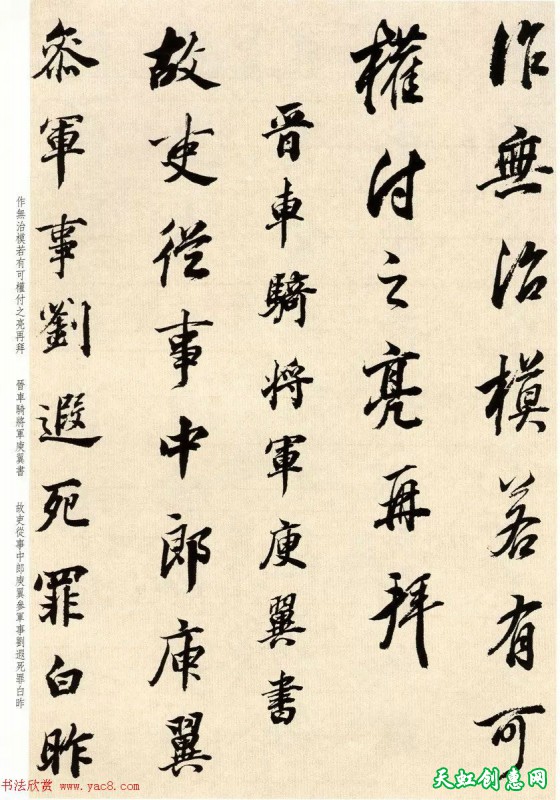 作無治模若有可
權付之亮再拜
晉車騎將軍庾翼書
故吏從事中郎庾翼
參軍事劉遐死罪白昨
作無治模若有可權付之亮再拜 晉車騎將軍庾翼書 故吏從事中郎庾翼參軍事劉遐死罪白昨
书法欣赏 www.yac8.com
天虹创意网